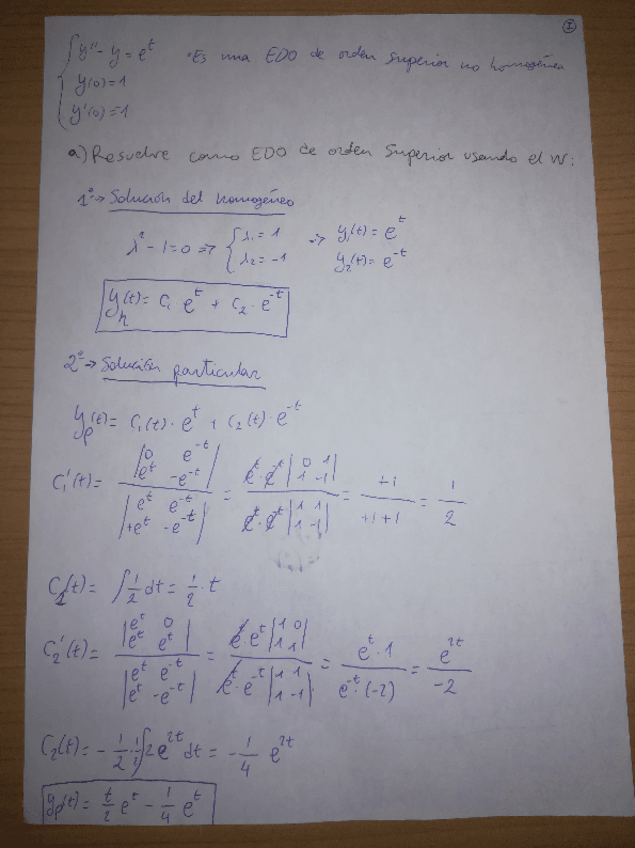 I
y'' - y = e^t · Es una EDO de orden superior no homogénea
y(0) = 1
y'(0) = 1
a) Resuelve como EDO de orden superior usando el W:
1º → Solución del homogéneo
λ² - 1 = 0 => { λ₁ = 1 => y₁(t) = e^t
λ₂ = -1 y₂(t) = e^-t
y_h(t) = C₁ e^t + C₂ · e^-t
2º → Solución particular
y_p(t) = C₁(t) · e^t + C₂(t) · e^-t
C₁'(t) = |0 e^-t; e^t -e^-t| / |e^t e^-t; +e^t -e^-t| = e^t · e^-t |0 1; 1 -1| / e^t · e^-t |1 1; 1 -1| = +1 / +1+1 = 1/2
C₁(t) = ∫ 1/2 dt = 1/2 · t
C₂'(t) = |e^t 0; e^t e^t| / |e^t e^-t; e^t -e^-t| = e^t · e^t |1 0; 1 1| / e^t · e^-t |1 1; 1 -1| = e^t · 1 / e^-t · (-2) = e^2t / -2
C₂(t) = - 1/2 · 1/2 ∫ 2 e^2t dt = - 1/4 e^2t
y_p(t) = t/2 e^t - 1/4 e^t